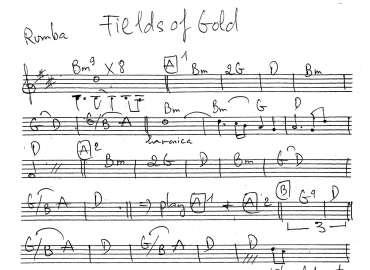 Fields of Gold
Rumba
Bm⁹ X8 A 1 Bm 2G D Bm
G D G/B A Bm Bm G D
harmonica
D A 2 Bm 2G D Bm G D
G/B A D => play A 1 + A 2 B G⁹ D
3
G/B A D G/B A D